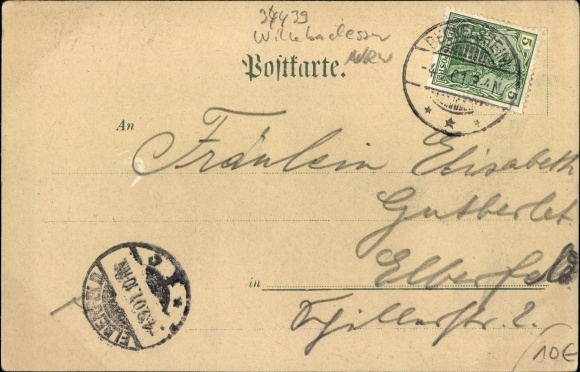 34439
Willebadessen
NRW
Postkarte.
5
5
An
Fräulein Elisabeth
Gutberlet
in Elberfeld
Schillerstr. 2.
ELBERFELD
10€